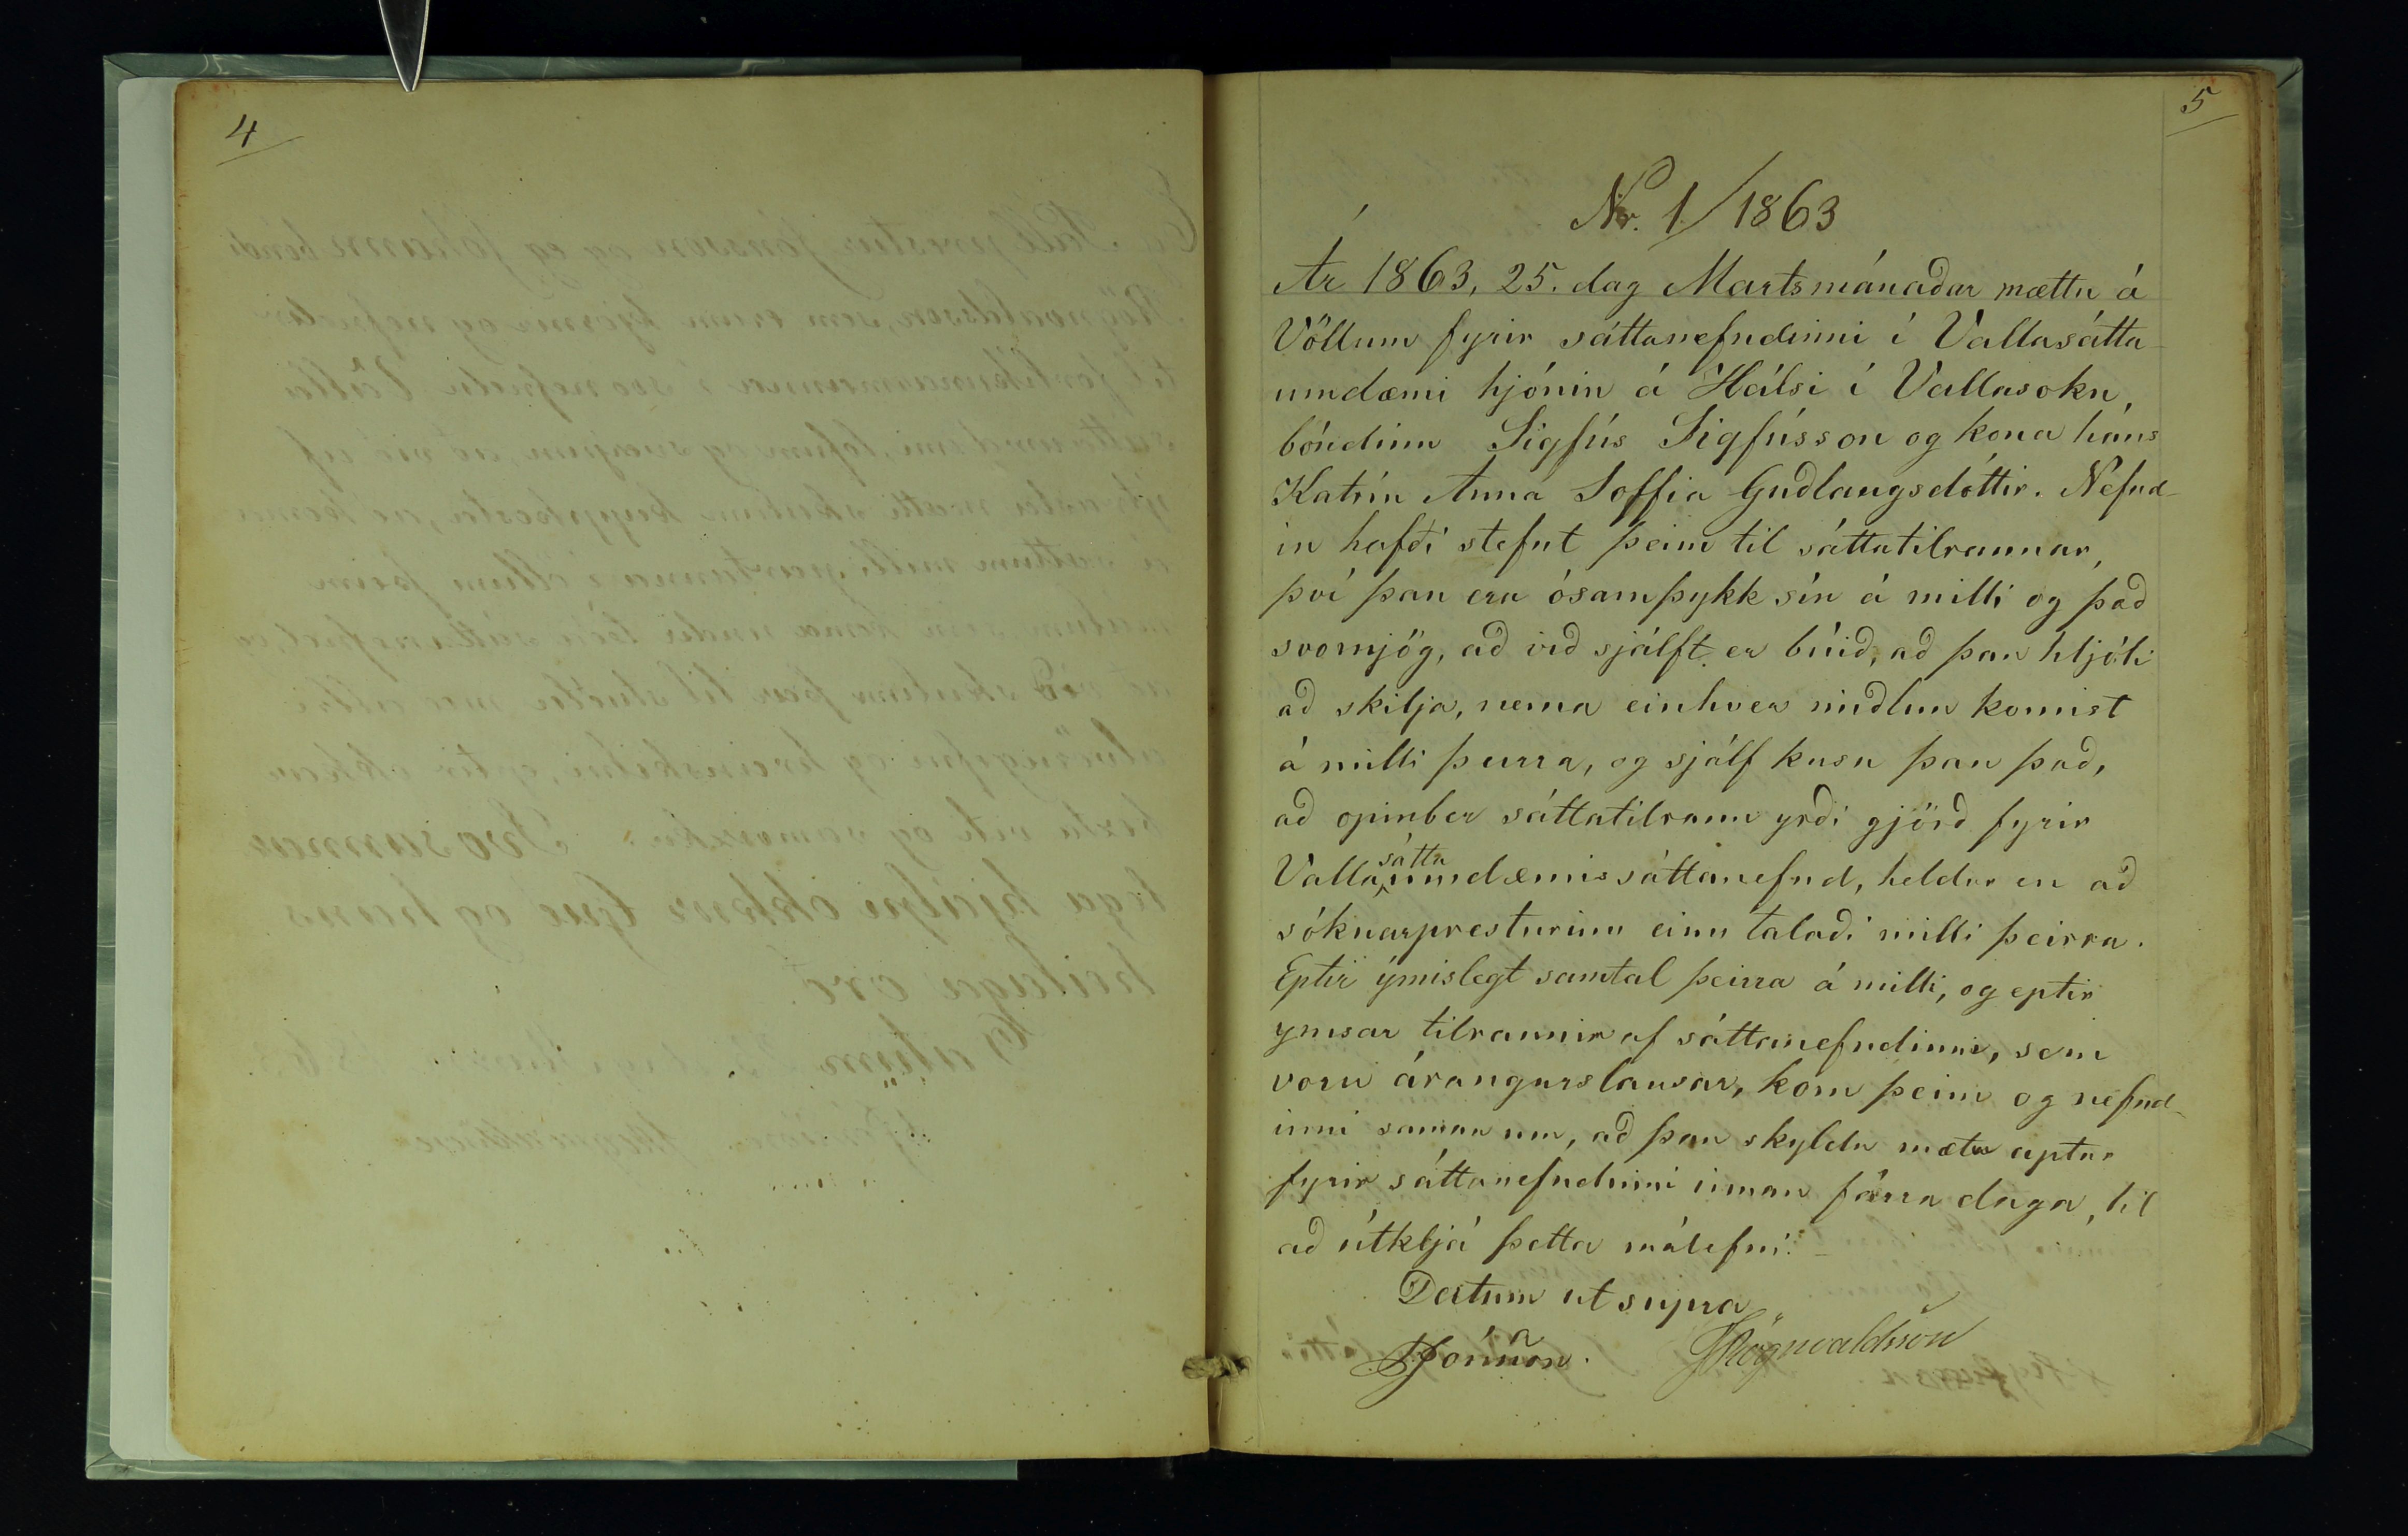 4
5
Nr. 1/1863
Ár 1863, 25. dag Martsmánaðar mættu á
Völlum fyrir sáttanefndinni í Vallasátta-
umdæmi hjónin á Hálsi í Vallasokn,
bóndinn Sigfús Sigfússon og kona hans
Katrín Anna Soffia Guðlaugsdóttir. Nefnd-
in hafði stefnt þeim til sáttatilraunar,
því þau eru ósamþykk sín á milli og það
svo mjög, að við sjálft er búið, að þau hljóti
að skilja, nema einhver miðlun komist
á milli þeirra, og sjálf kusu þau það,
að opinber sáttatilraun yrði gjörð fyrir
Vallasáttaumdæmis sáttanefnd, heldur en að
sóknarpresturinn einn talaði milli þeirra.
Eptir ýmislegt samtal þeirra á milli, og eptir
ymsar tilraunir af sáttanefndinni, sem
voru árangurslausar, kom þeim og nefnd-
inni saman um, að þau skyldu mæta aptur
fyrir sáttanefndinni innan fárra daga, til
að útkljá þetta málefni. –
Datum ut supra
PJónsson. JRögnvaldsson